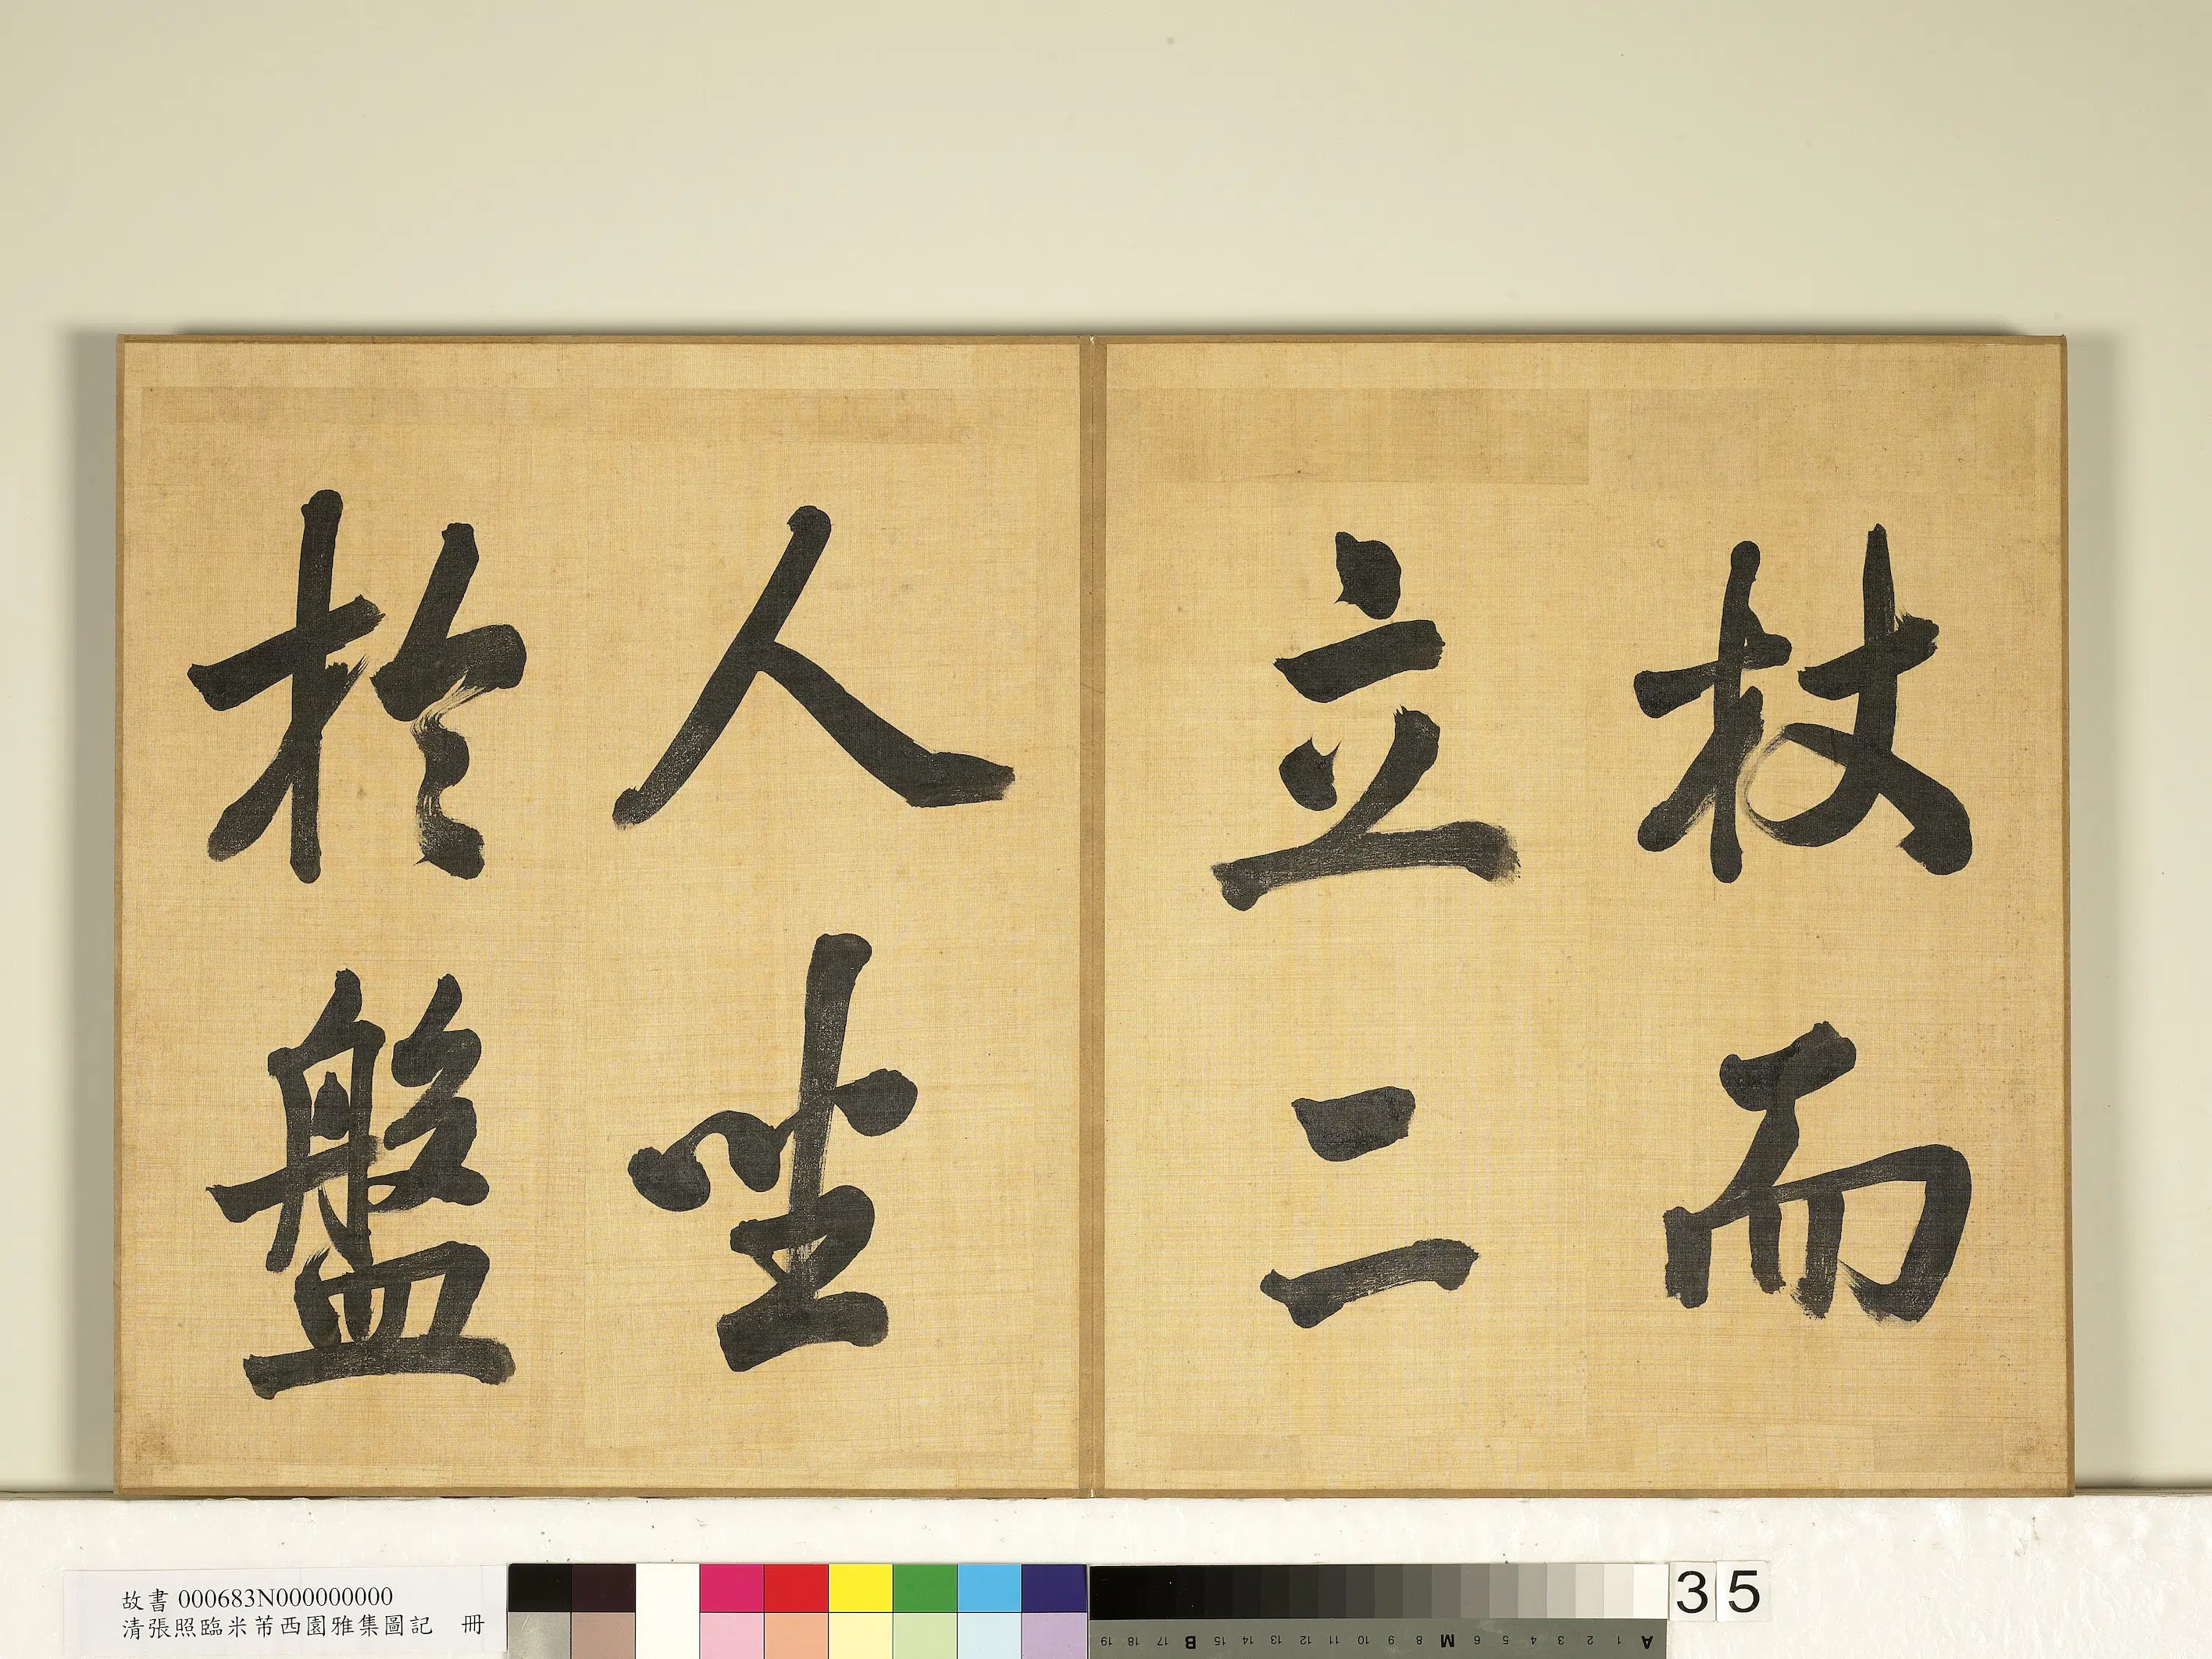 杖而
立二
人坐
於盤
故書 000683N000000000
清張照臨米芾西園雅集圖記 冊
35
19 18 17 B 15 14 13 12 11 10 9 8 M 6 5 4 3 2 1 A